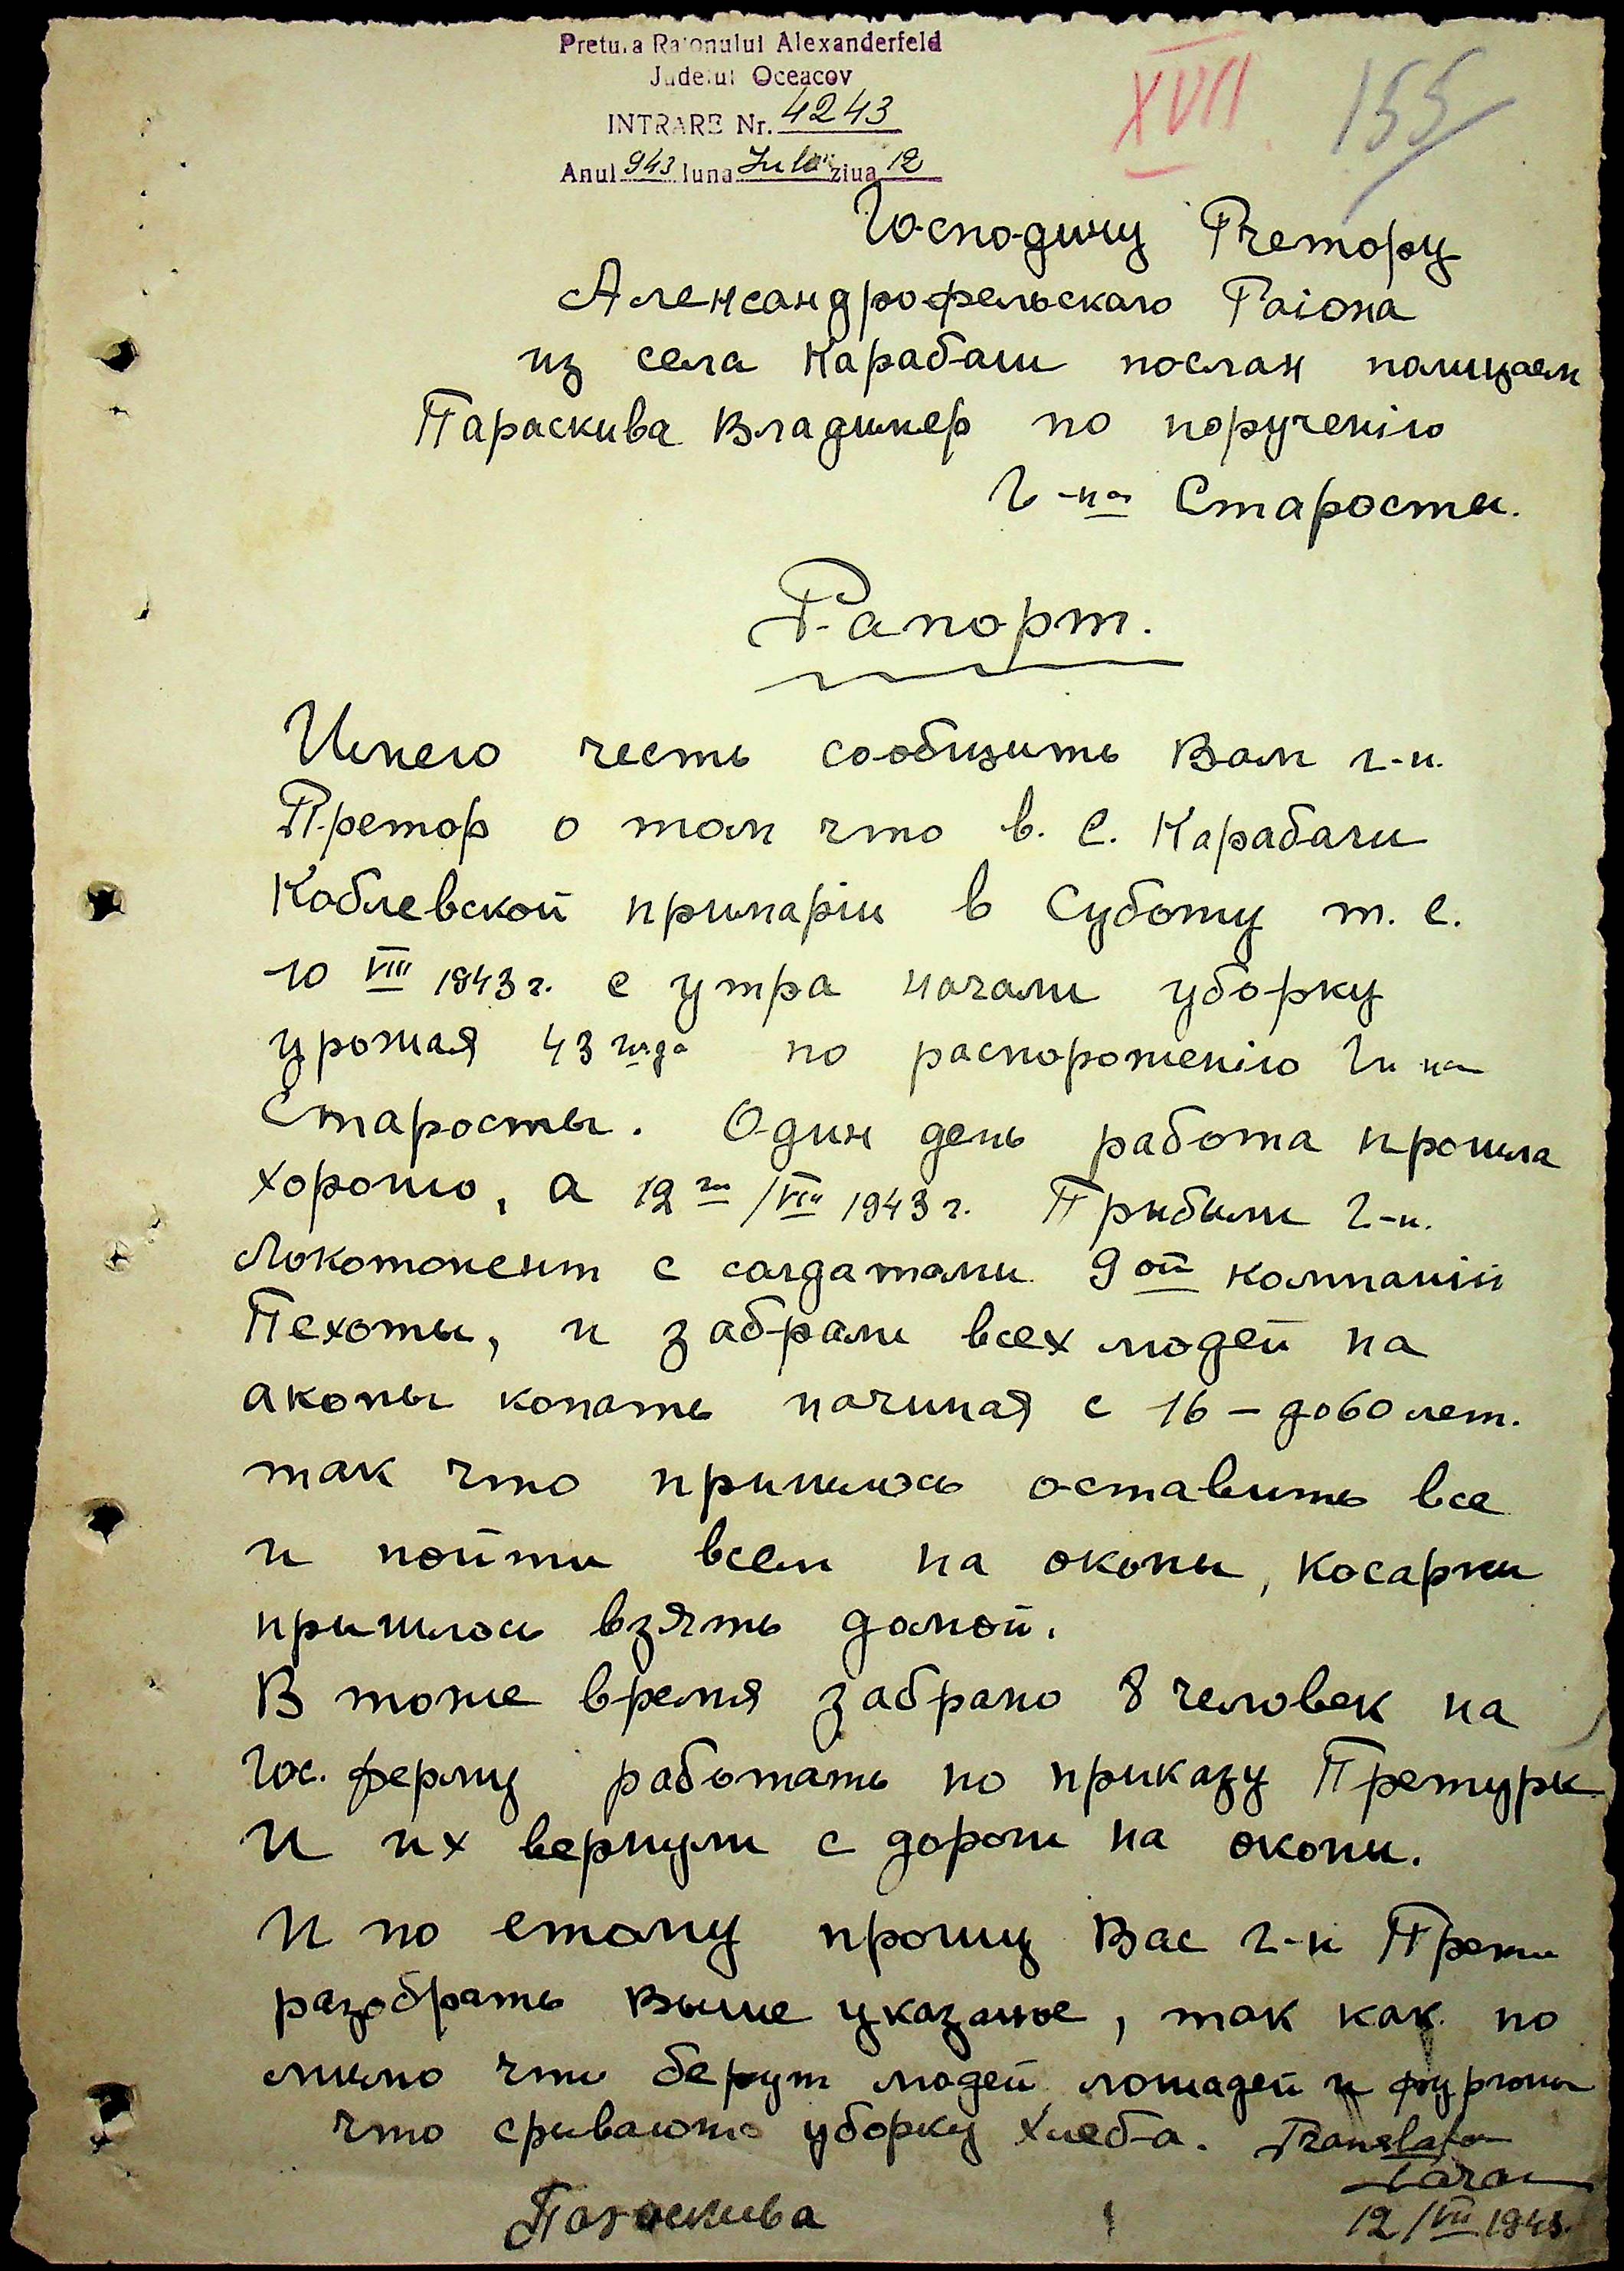 Pretura Raionului Alexanderfeld
Judeţul Oceacov
INTRARE Nr. 4243
Anul 943 luna Iulie ziua 12
XVII 155
Господину Претору
Александрофельскаго Раіона
из села Карабаш послан полицаем
Параскива Владимер по порученію
Г-на Старосты.
Рапорт.
Имею честь сообщить Вам г-н.
Претор о том что в. с. Карабаш
Коблевской примаріи в Суботу т. е.
10 VIII 1943 г. с утра начали уборку
урожая 43 года по распорожению Г-на
Старосты. Один день работа прошла
хорошо, а 12 го /VIII 1943 г. Прибыли г-н.
Локотонент с солдатами 9 ой компаніи
Пехоты, и забрали всех людей на
акопы копать начиная с 16 – до 60 лет.
так что пришлось оставить все
и пойти всем на окопы, косарки
пришлось взять домой.
В тоже время забрано 8 человек на
Гос. ферму работать по приказу Претуры
И их вернули с дороги на окопы.
И по етому прошу Вас г-н
разобрать выше указаное, так как по
мимо что берут людей лошадей и фургоны
что срывають уборку хлеба. Translator
Параскива
12/VII 1943